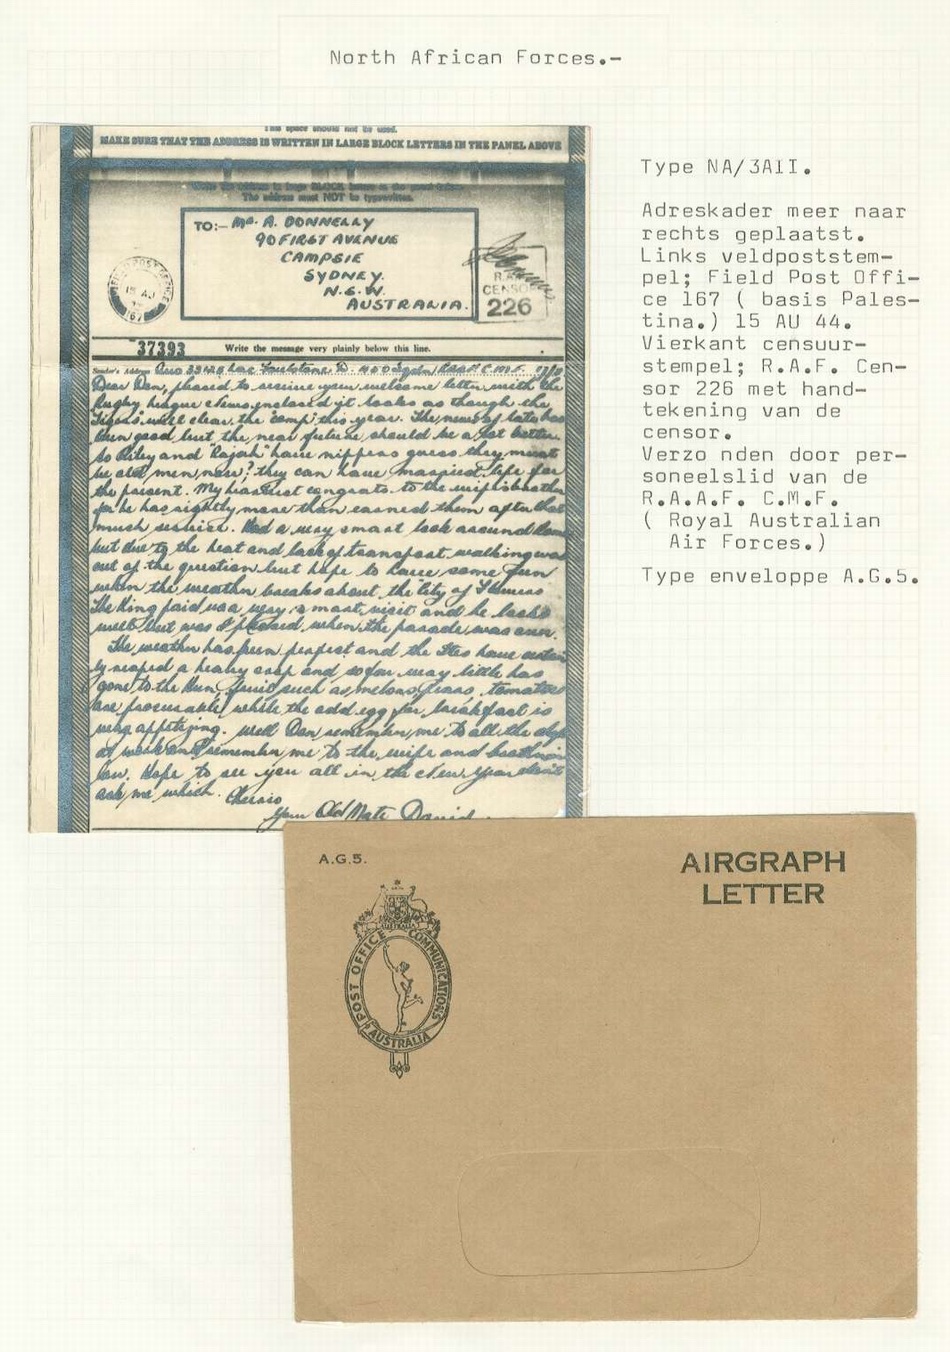 North African Forces.-
This space should not be used.
MAKE SURE THAT THE ADDRESS IS WRITTEN IN LARGE BLOCK LETTERS IN THE PANEL ABOVE
The address must NOT be typewritten.
TO:- Mr. A. DONNELLY
90 FIRST AVENUE
CAMPSIE
SYDNEY.
N.S.W.
AUSTRALIA.
FIELD POST OFFICE
15 AU
167
R.A.F.
CENSOR
226
37393 Write the message very plainly below this line.
Sender's Address
Dear Dan, pleased to receive your welcome letter with the
Rugby league news enclosed it looks as though the
Tigers will clear the comp this year. The news of late has
been good but the near future should be a lot better
So Riley and "Rajah" have nippers guess they must
be old men now? they can have married life for
the present. My heartiest congrats to the wife's brother
for he has rightly more than earned them after that
much service. Had a very smart look around
but due to the heat and lack of transport walking was
out of the question but hope to have some fun
when the weather breaks about the City of
The King paid us a very smart visit and he looked
well but was I pleased when the parade was over.
The weather has been perfect and the have
reaped a heavy crop and so far very little has
gone to the Hun, fruit such as melons, pears, tomatoes
are procurable while the odd egg for breakfast is
very appetizing. Well Dan remember me to all the
at work and remember me to the wife and brother in
law. Hope to see you all in the New Year don't
ask me which. Cheerio
Your Old Mate David
Type NA/3A1I.
Adreskader meer naar
rechts geplaatst.
Links veldpoststem-
pel; Field Post Offi-
ce 167 ( basis Pales-
tina.) 15 AU 44.
Vierkant censuur-
stempel; R.A.F. Cen-
sor 226 met hand-
tekening van de
censor.
Verzo nden door per-
soneelslid van de
R.A.A.F. C.M.F.
( Royal Australian
Air Forces.)
Type enveloppe A.G.5.
A.G.5.
AIRGRAPH
LETTER
AUSTRALIA
POST OFFICE COMMUNICATIONS
AUSTRALIA